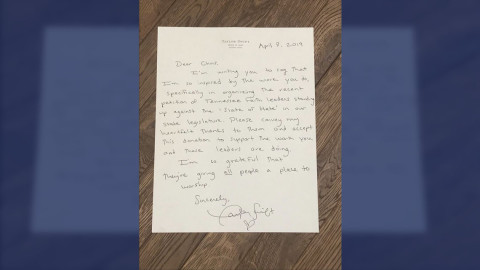 April 8, 2019
Dear Chris,
I'm writing you to say that
I'm so inspired by the work you do,
specifically in organizing the recent
petition of Tennessee faith leaders standing
up against the 'Slate of Hate' in our
state legislature. Please convey my
heartfelt thanks to them and accept
this donation to support the work you
and these leaders are doing.
I'm so grateful that
they're giving all people a place to
worship.
Sincerely,
Taylor Swift